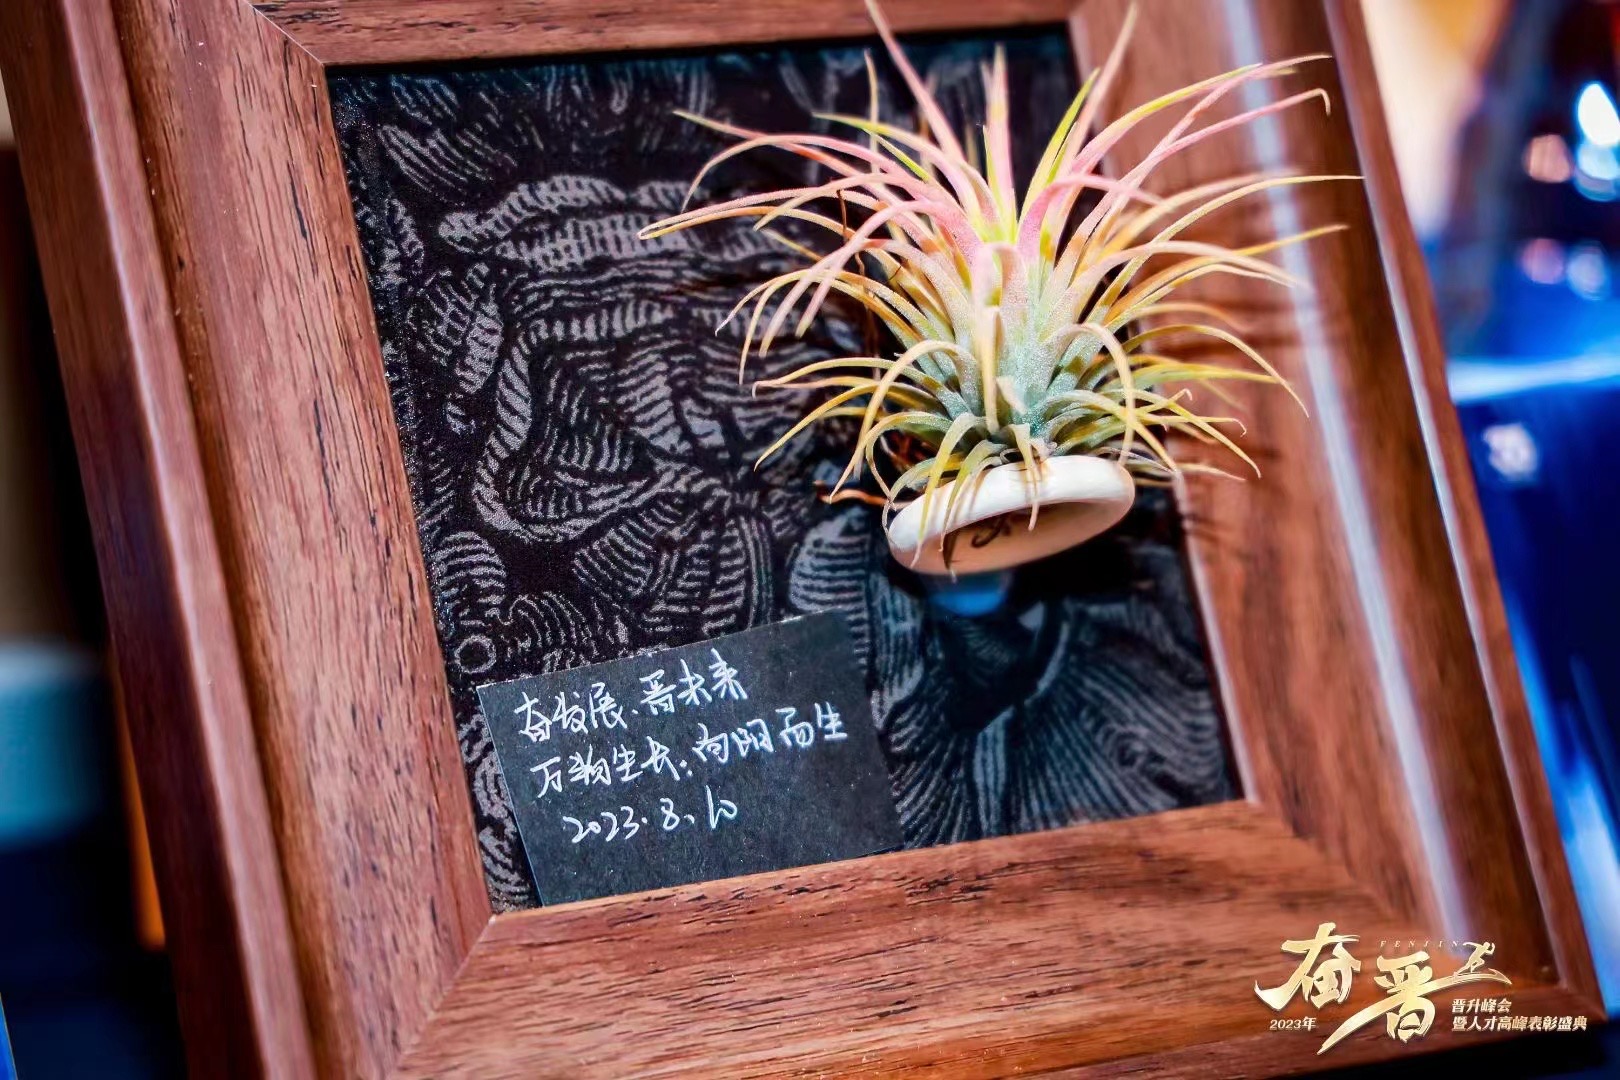 奋发展、晋未来
万物生长;向阳而生
2023.8.10
FENJIN
奋晋
2023年
晋升峰会
暨人才高峰表彰盛典